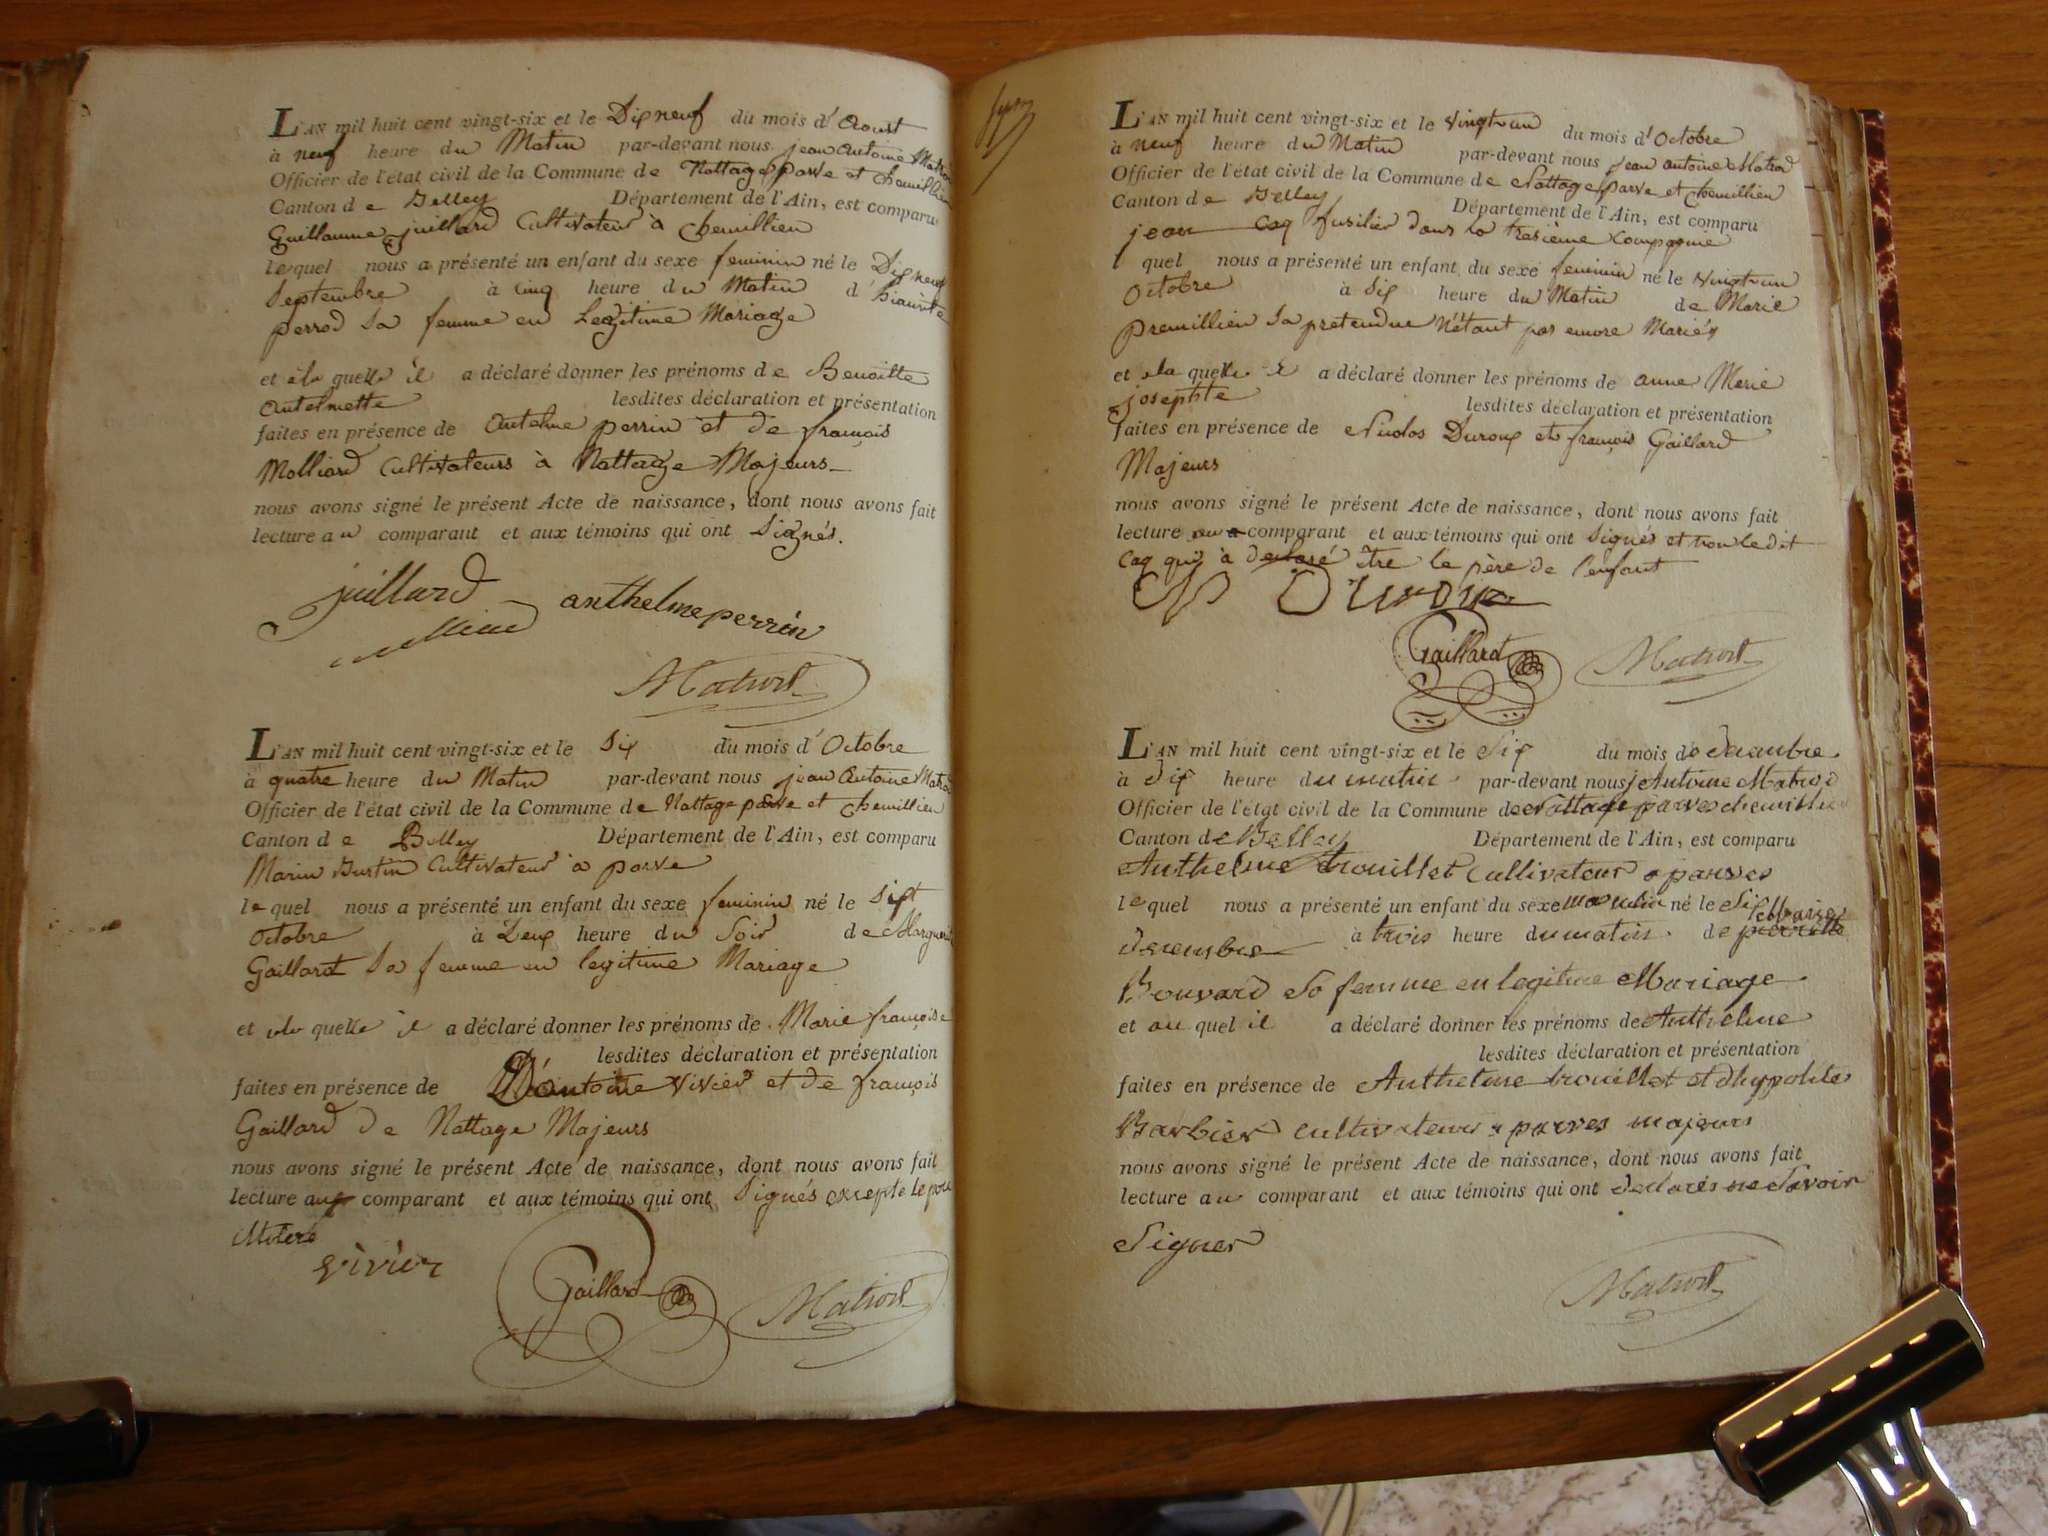 L'AN mil huit cent vingt-six et le Dix neuf du mois d'Aoust
à neuf heure du Matin par-devant nous jean Antoine Matrod
Officier de l'état civil de la Commune de Nattage parve et chemillieu
Canton de Belley Département de l'Ain, est comparu
Guillaume juillard Cultivateur à chemillieu
lequel nous a présenté un enfant du sexe feminin né le Dix neuf
Septembre à cinq heure du Matin d'hiacinte
perrod sa femme en Legitime Mariage
et à la quelle il a déclaré donner les prénoms de Benoitte
Antelmette lesdites déclaration et présentation
faites en présence de Antelme perrin et de françois
Molliard Cultivateurs à Nattage Majeurs
nous avons signé le présent Acte de naissance, dont nous avons fait
lecture au comparant et aux témoins qui ont signés.
juillard anthelme perrin
Matrod
L'AN mil huit cent vingt-six et le Six du mois d'Octobre
à quatre heure du Matin par-devant nous jean Antoine Matrod
Officier de l'état civil de la Commune de Nattage parve et chemillieu
Canton de Belley Département de l'Ain, est comparu
Marin Burtin Cultivateur à parve
lequel nous a présenté un enfant du sexe feminin né le Sixt
Octobre à Deux heure du Soir de Marguerite
Gaillard sa femme en legitime Mariage
et à la quelle il a déclaré donner les prénoms de Marie françoise
lesdites déclaration et présentation
faites en présence de D'antoine vivier et de françois
Gaillard de Nattage Majeurs
nous avons signé le présent Acte de naissance, dont nous avons fait
lecture au comparant et aux témoins qui ont Signés excepté le
vivier Gaillard Matrod
L'AN mil huit cent vingt-six et le vingt un du mois d'Octobre
à neuf heure du Matin par-devant nous jean antoine Matrod
Officier de l'état civil de la Commune de Nattage parve et chemillieu
Canton de Belley Département de l'Ain, est comparu
jean coq fusilier dans la tresième compagnie
quel nous a présenté un enfant du sexe feminin né le vingt un
Octobre à Six heure du Matin de Marie
premillieu sa pretendue N'étant pas encore Mariés
et à la quelle il a déclaré donner les prénoms de anne Marie
josephte lesdites déclaration et présentation
faites en présence de Nicolas Duroux et françois Gaillard
Majeurs
nous avons signé le présent Acte de naissance, dont nous avons fait
lecture au comparant et aux témoins qui ont signés et non le dit
Coq qui à declaré être le père de l'enfant
Duroux
Gaillard Matrod
L'AN mil huit cent vingt-six et le Six du mois de decembre
à Dix heure du matin par-devant nous j Antoine Matrod
Officier de l'état civil de la Commune de Nattage parves chemillieu
Canton de Belley Département de l'Ain, est comparu
Anthelme trouillet Cultivateur a parves
lequel nous a présenté un enfant du sexe masculin né le Six
decembre à trois heure du matin de pierrette Marie
Bouvard sa femme en legitime Mariage
et au quel il a déclaré donner les prénoms de Anthelme
lesdites déclaration et présentation
faites en présence de Anthelme trouillet et d'hyppolite
Barbier cultivateurs a parves majeurs
nous avons signé le présent Acte de naissance, dont nous avons fait
lecture au comparant et aux témoins qui ont declarés ne savoir
Signer
Matrod